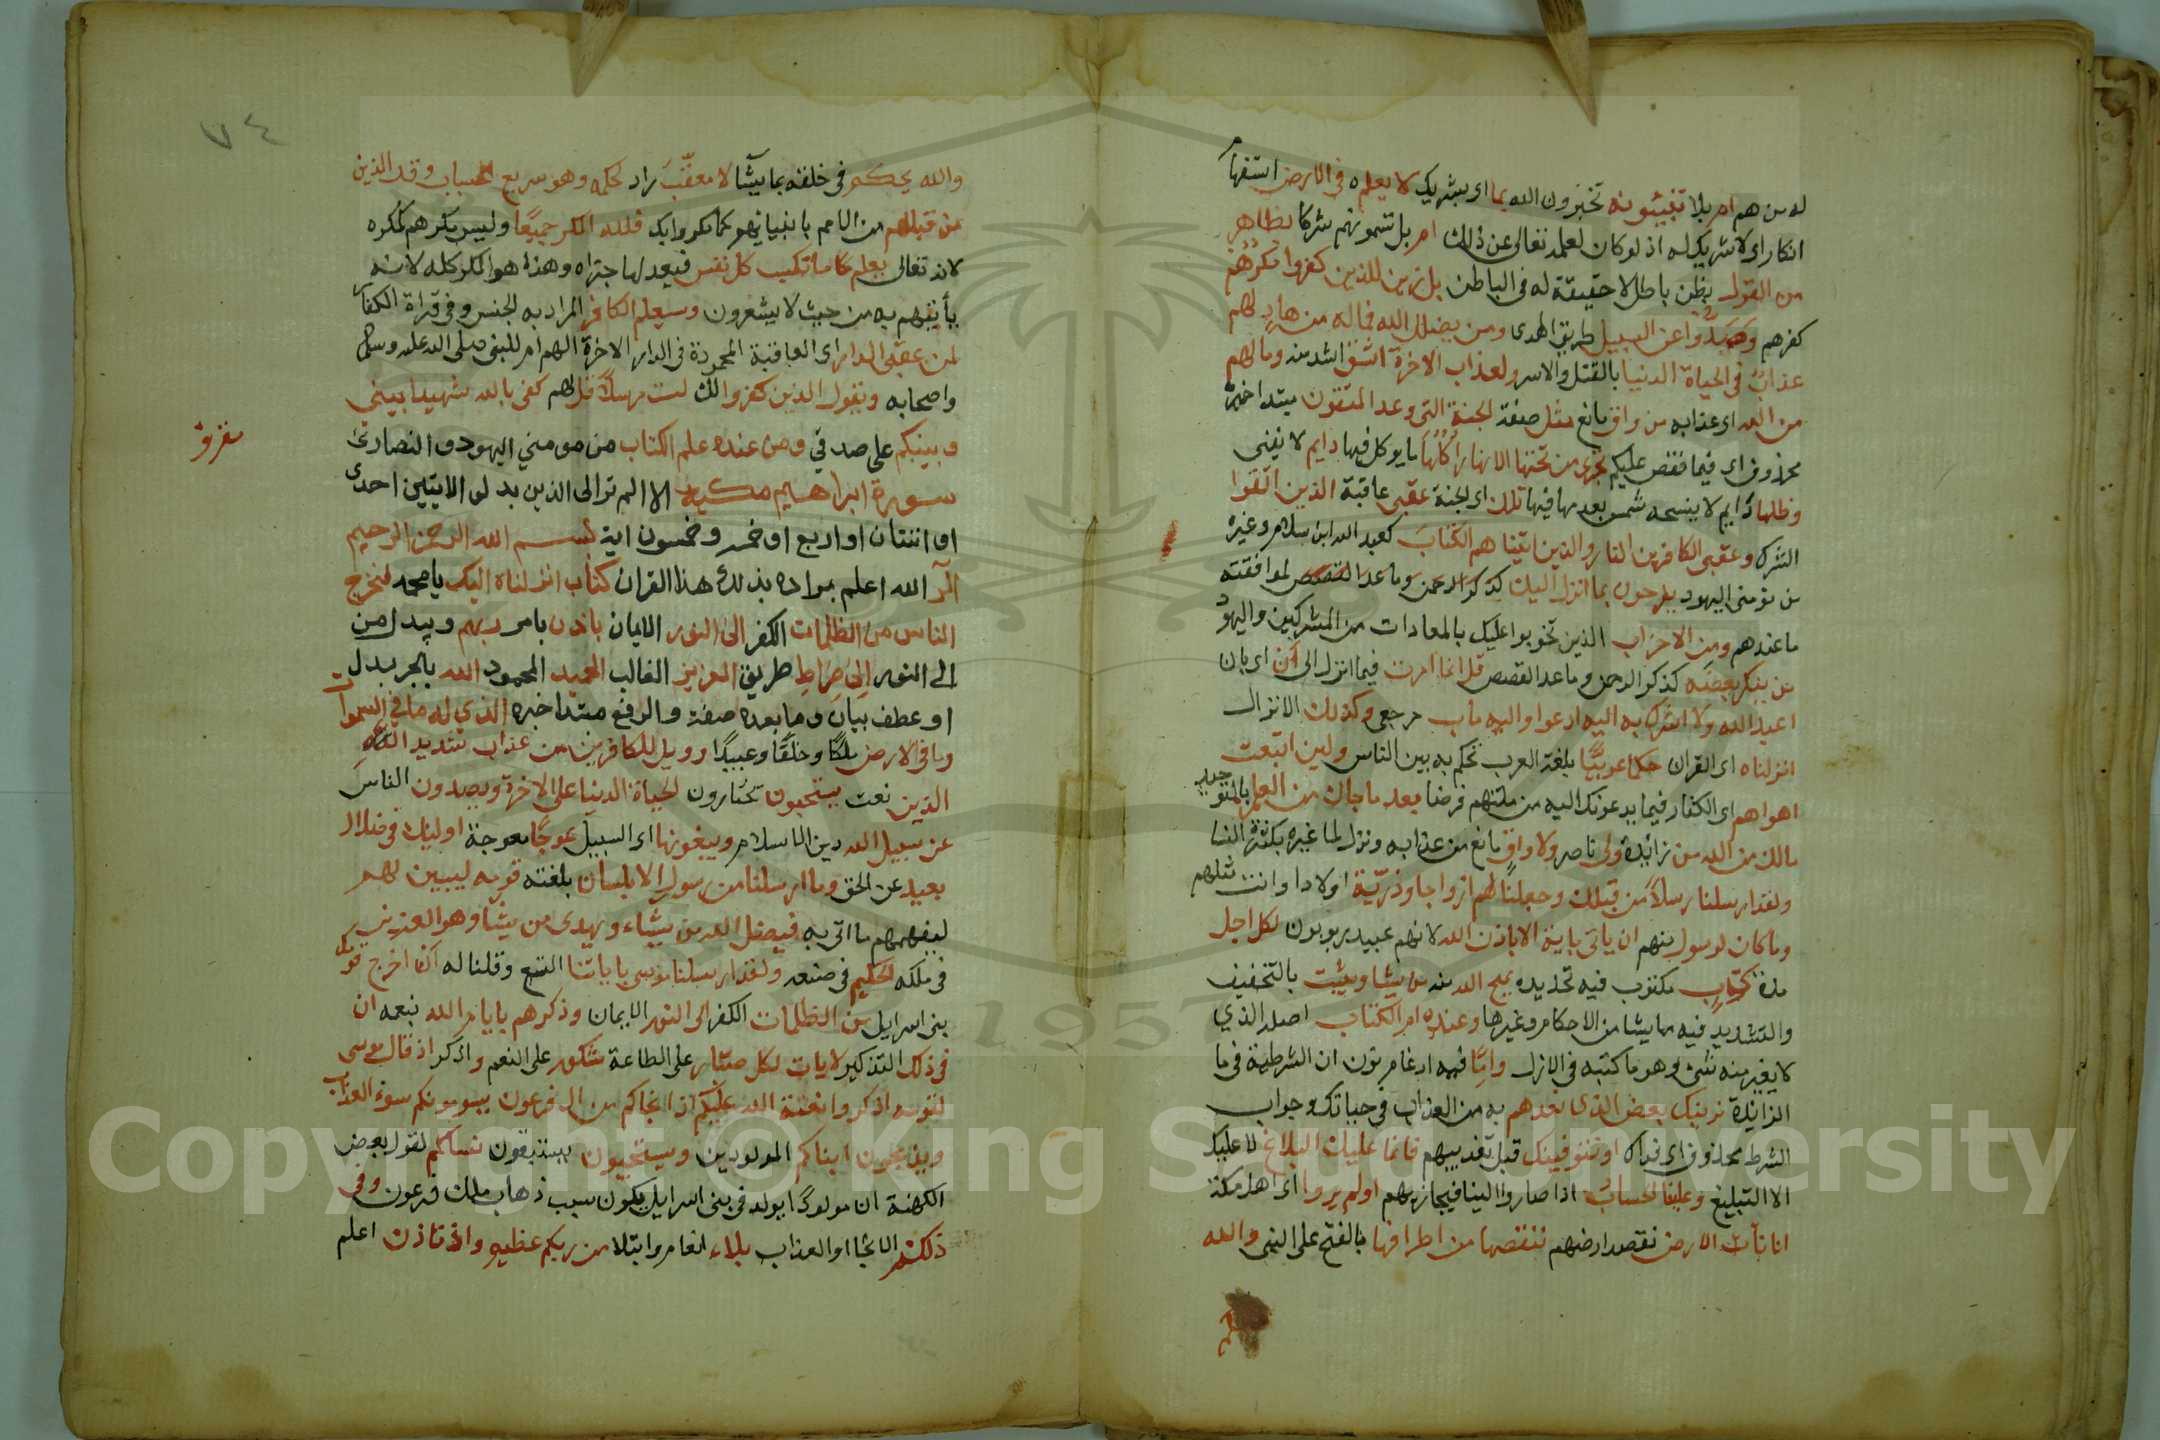 له من هم ام بلا تنبئونه تخبرون الله بما اى بشريك لا يعلم ه فى الارض استفهام
انكار اى لا شريك له اذ لو كان لعلمه تعالى عن ذلك ام بل تسمونهم شركا بظاهر
من القول بظن باطل لا حقيقة له فى الباطن بل زين للذين كفروا مكرهم
كفرهم وصدوا عن السبيل طريق الهدى ومن يضلل الله فما له من هاد لهم
عذاب فى الحياة الدنيا بالقتل والاسر ولعذاب الاخرة اشق اشد منه وما لهم
من الله اى عذابه من واق مانع مثل صفة الجنة التى وعد المتقون مبتدا خبره
محذوف اى فيما نقص عليكم تجرى من تحتها الانهار اكلها ما يوكل فيها دايم لا يفنى
وظلها دايم لا ينسخه شمس بعدمها فيها تلك اى الجنة عقبى عاقبة الذين اتقوا
الشرك وعقبى الكافرين النار والذين اتيناهم الكتاب كعبد الله ابن سلام وغيره
من مؤمنى اليهود يفرحون بما انزل اليك كذكر الرحمن وما عدا القصص لموافقته
ما عندهم ومن الاحزاب الذين تحزبوا عليك بالمعادات من المشركين واليهود
من ينكر بعضه كذكر الرحمن وما عدا القصص قل انما امرت فيما انزل الى ان اى بان
اعبد الله ولا اشرك به اليه ادعوا واليه ماب مرجعى وكذلك الانزال
انزلناه اى القران حكما عربيا بلغة العرب تحكم به بين الناس ولين اتبعت
اهواهم اى الكفار فيما يدعونك اليه من ملتهم فرضا بعد ما جاك من العلم بالتوحيد
مالك من الله من زايدة ولى ناصر ولا واق مانع من عذابه ونزل لما غيره بكثرة النسا
ولقد ارسلنا رسلا من قبلك وجعلنا لهم ازواجا وذرية اولادا وانت مثلهم
وما كان لرسول منهم ان ياتى باية الا باذن الله لانهم عبيد مربوبون لكل اجل
مدة كتاب مكتوب فيه تحديده يمح الله منه ما يشا ويثبت بالتخفيف
والتشديد فيه ما يشا من الاحكام وغيرها وعنده ام الكتاب اصله الذي
لا يغير منه شئ وهو ما كتبه فى الازل واما فيه ادغام نون ان الشرطية فى ما
الزايدة نرينك بعض الذى نعدهم به من العذاب فى حياتك وجواب
الشرط محذوف اى فذاك او نتوفينك قبل تعذيبهم فانما عليك البلاغ لا عليك
الا التبليغ وعلينا الحساب اذا صاروا الينا فيجازيهم اولم يروا اى اهل مكة
انا نأت الارض نقصد ارضهم ننقصها من اطرافها بالفتح على النبى والله
٧٤
والله يحكم فى خلقه بما يشا لا معقب راد لحكمه وهو سريع الحساب وقد الذين
من قبلهم من الامم بانبيائهم كما مكروا بك فلله المكر جميعا وليس مكرهم كمكره
لانه تعالى يعلم ما تكسب كل نفس فيعد لها جزاه وهذا هو المكر كله لانه
يأتيهم به من حيث لا يشعرون وسيعلم الكافر المراد به الجنس وفى قراة الكفار
لمن عقبى الدار اى العاقبة المحمودة فى الدار الاخرة الهم ام للنبى صلى الله عليه وسلم
واصحابه ويقول الذين كفروا لك لست مرسلا قل لهم كفى بالله شهيدا بينى
وبينكم على صدقي ومن عنده علم الكتاب من مومني اليهود والنصارى
سورة ابراهيم مكية الا الم تر الى الذين بدلو الايتين احدى
او اثنتان او اربع او خمس وخمسون اية بسم الله الرحمن الرحيم
الر الله اعلم بمراده بذلك هذا القران كتاب انزلناه اليك يا محمد لتخرج
الناس من الظلمات الكفر الى النور الايمان باذن بامر ربهم ويبدل من
الى النور الى صراط طريق العزيز الغالب الحميد المحمود الله بالجر بدل
او عطف بيان وما بعده صفة والرفع مبتدا خبره الذي له ما في السموات
وما فى الارض ملكا وخلقا وعبيدا وويل للكافرين من عذاب شديد
الذين نعت يستحبون تختارون الحياة الدنيا على الاخرة ويصدون الناس
عن سبيل الله دين الاسلام ويبغونها اى السبيل عوجا معوجة اوليك فى ضلال
بعيد عن الحق وما ارسلنا من رسول الا بلسان بلغة قومه ليبين لهم
ليفهمهم ما اتى به فيضل الله من يشاء ويهدى من يشا وهو العزيز
فى ملكه الحكيم فى صنعه ولقد ارسلنا موسى باياتنا التسع وقلنا له ان اخرج قومك
بنى اسرايل من الظلمات الكفر الى النور الايمان وذكرهم بايام الله بنعمه ان
فى ذلك التذكير لايات لكل صبار على الطاعة شكور على النعم واذكر اذ قال موسى
لقومه اذكروا نعمة الله عليكم اذ انجاكم من ال فرعون يسومونكم سوء العذاب
ويذبحون ابناكم المولودين ويستحيون يستبقون نساكم لقول بعض
الكهنة ان مولودا يولد فى بنى اسرايل يكون سبب ذهاب ملك فرعون وفى
ذلكم الانجا او العذاب بلاء انعام وابتلا من ربكم عظيم واذ تاذن اعلم
Copyright © King Saud University
1957